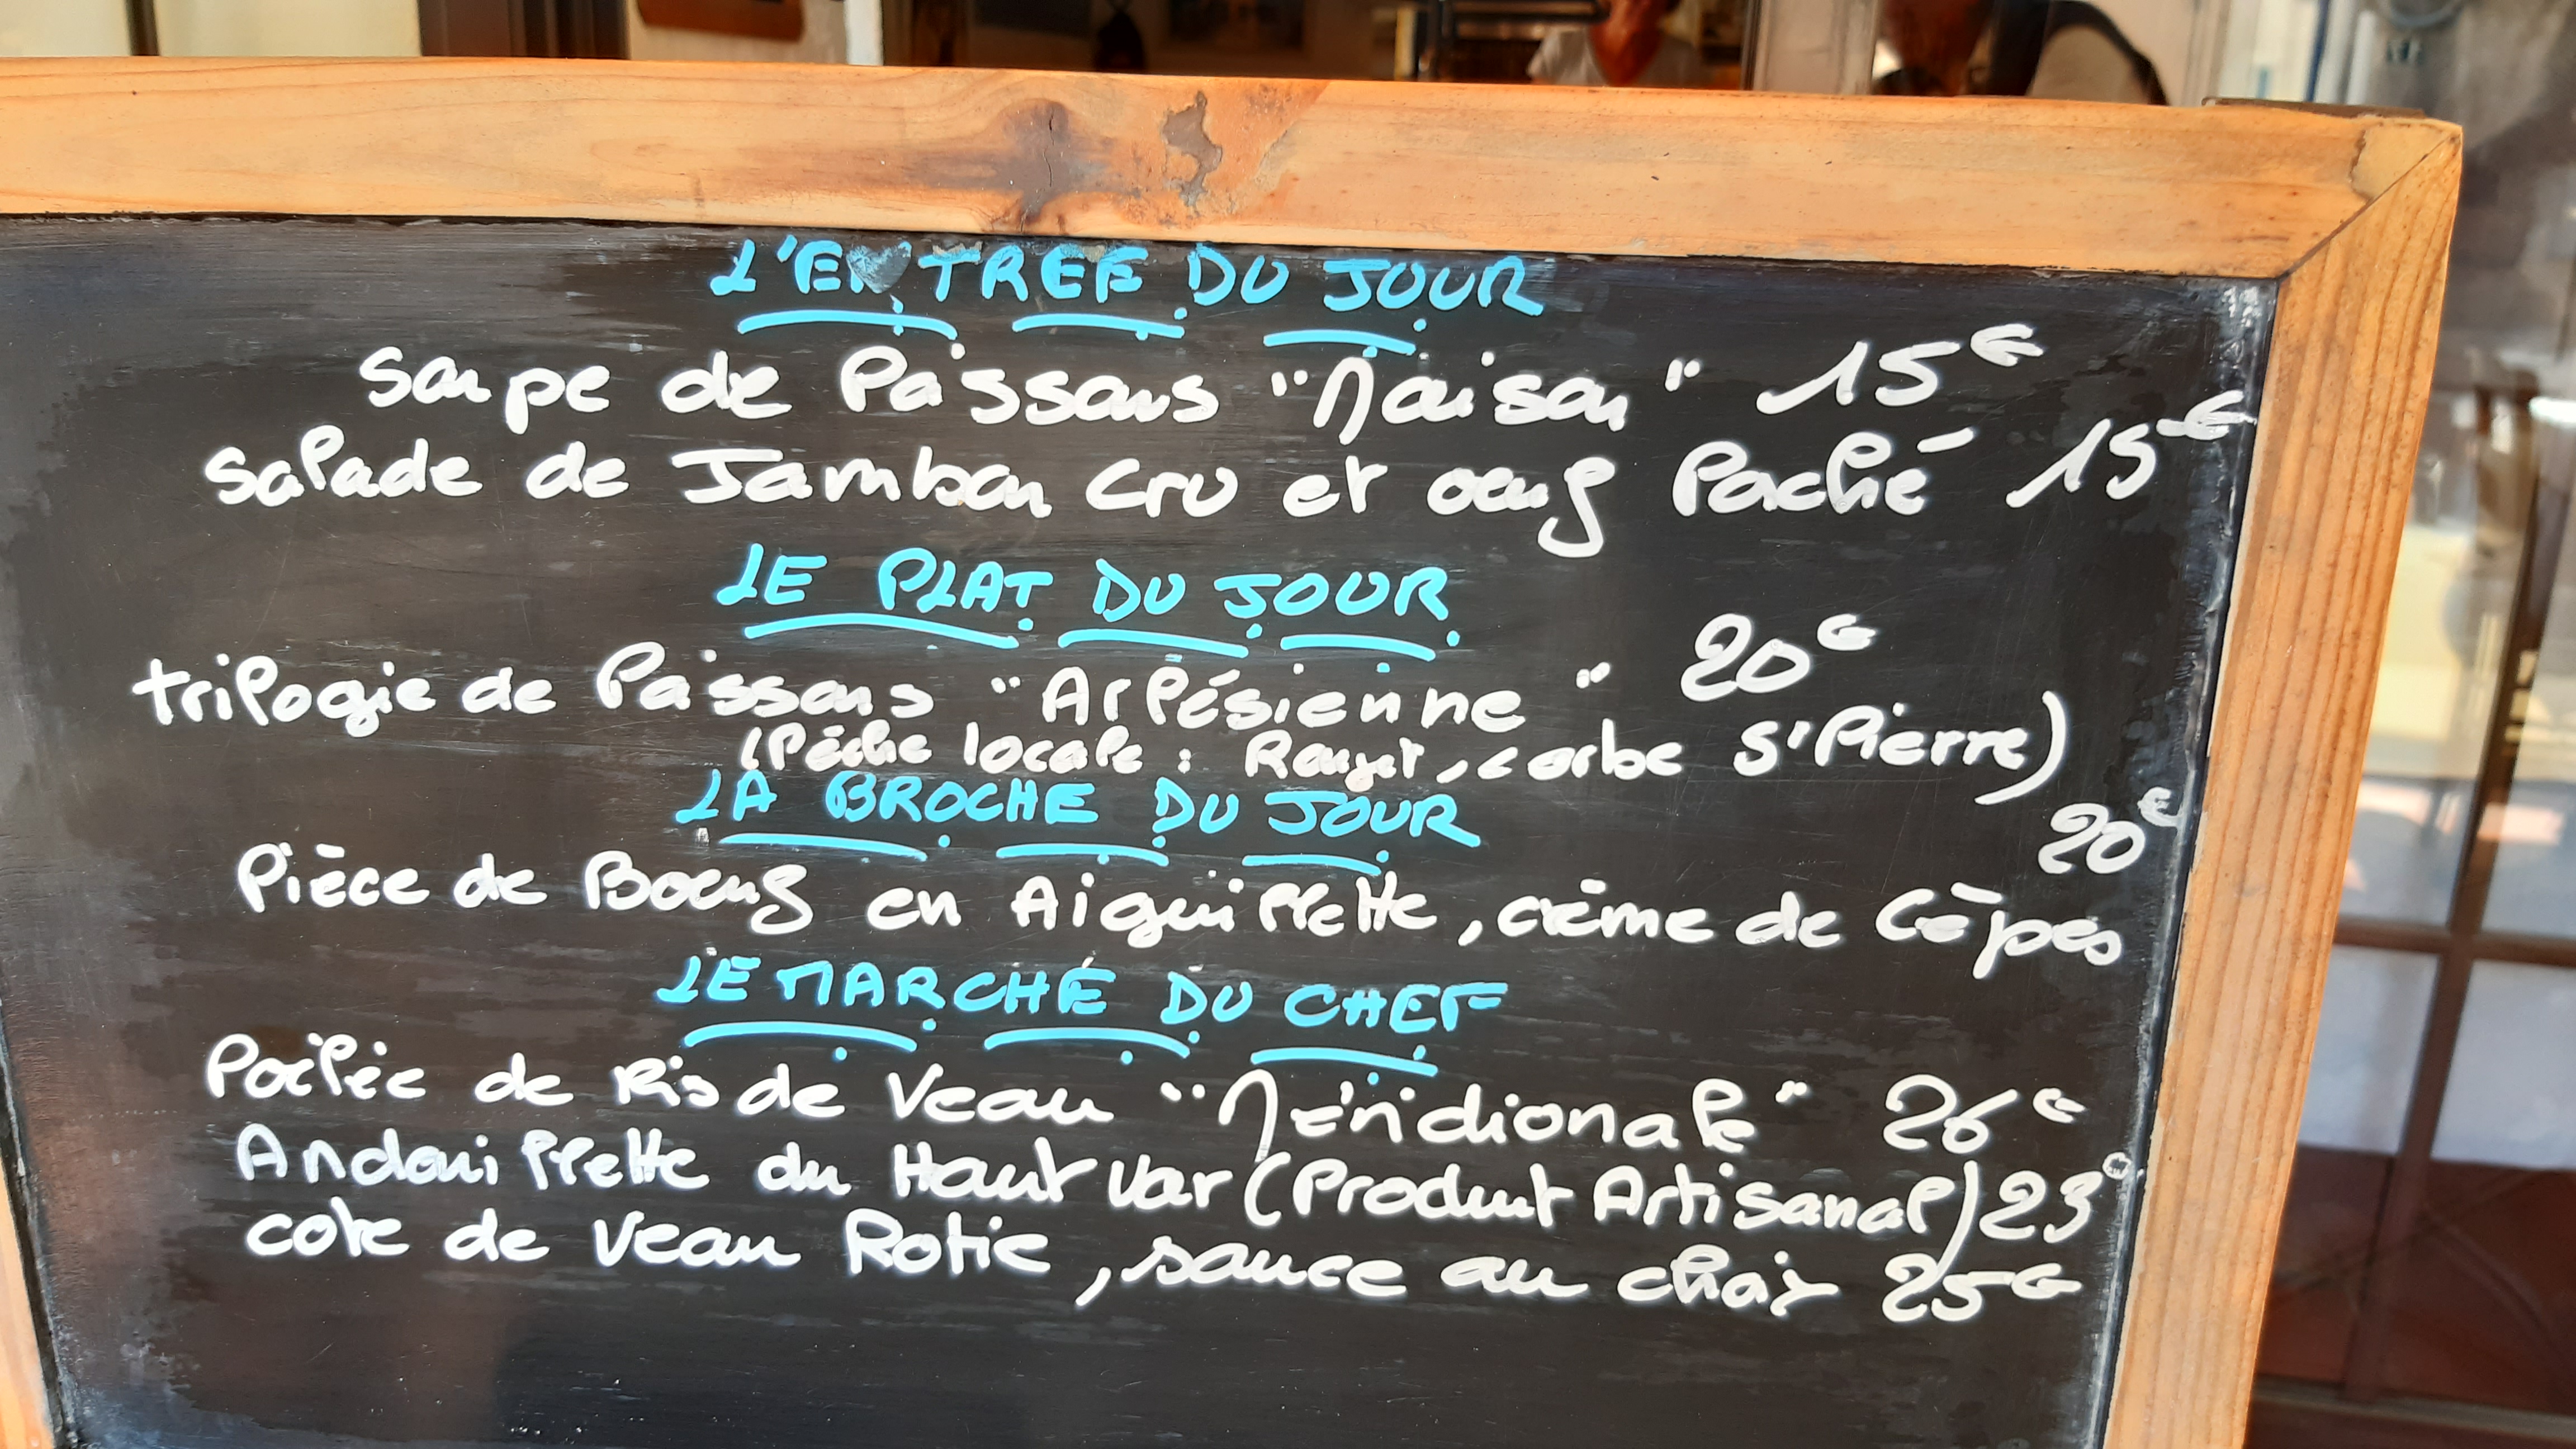 L'ENTREE DU JOUR
Soupe de Poissons "Maison" 15€
Salade de Jambon cru et oeuf Poché 15€
LE PLAT DU JOUR
trilogie de Poissons "Arlésienne" 20€
(Pêche locale : Rouget, corbe St Pierre)
LA BROCHE DU JOUR
20€
Pièce de Boeuf en Aiguillette, crème de Cèpes
LE MARCHÉ DU CHEF
Poêlée de Ris de Veau "Méridionale" 26€
Andouillette du Haut Var (Produit Artisanal) 23€
cote de Veau Rotie, sauce au choix 25€